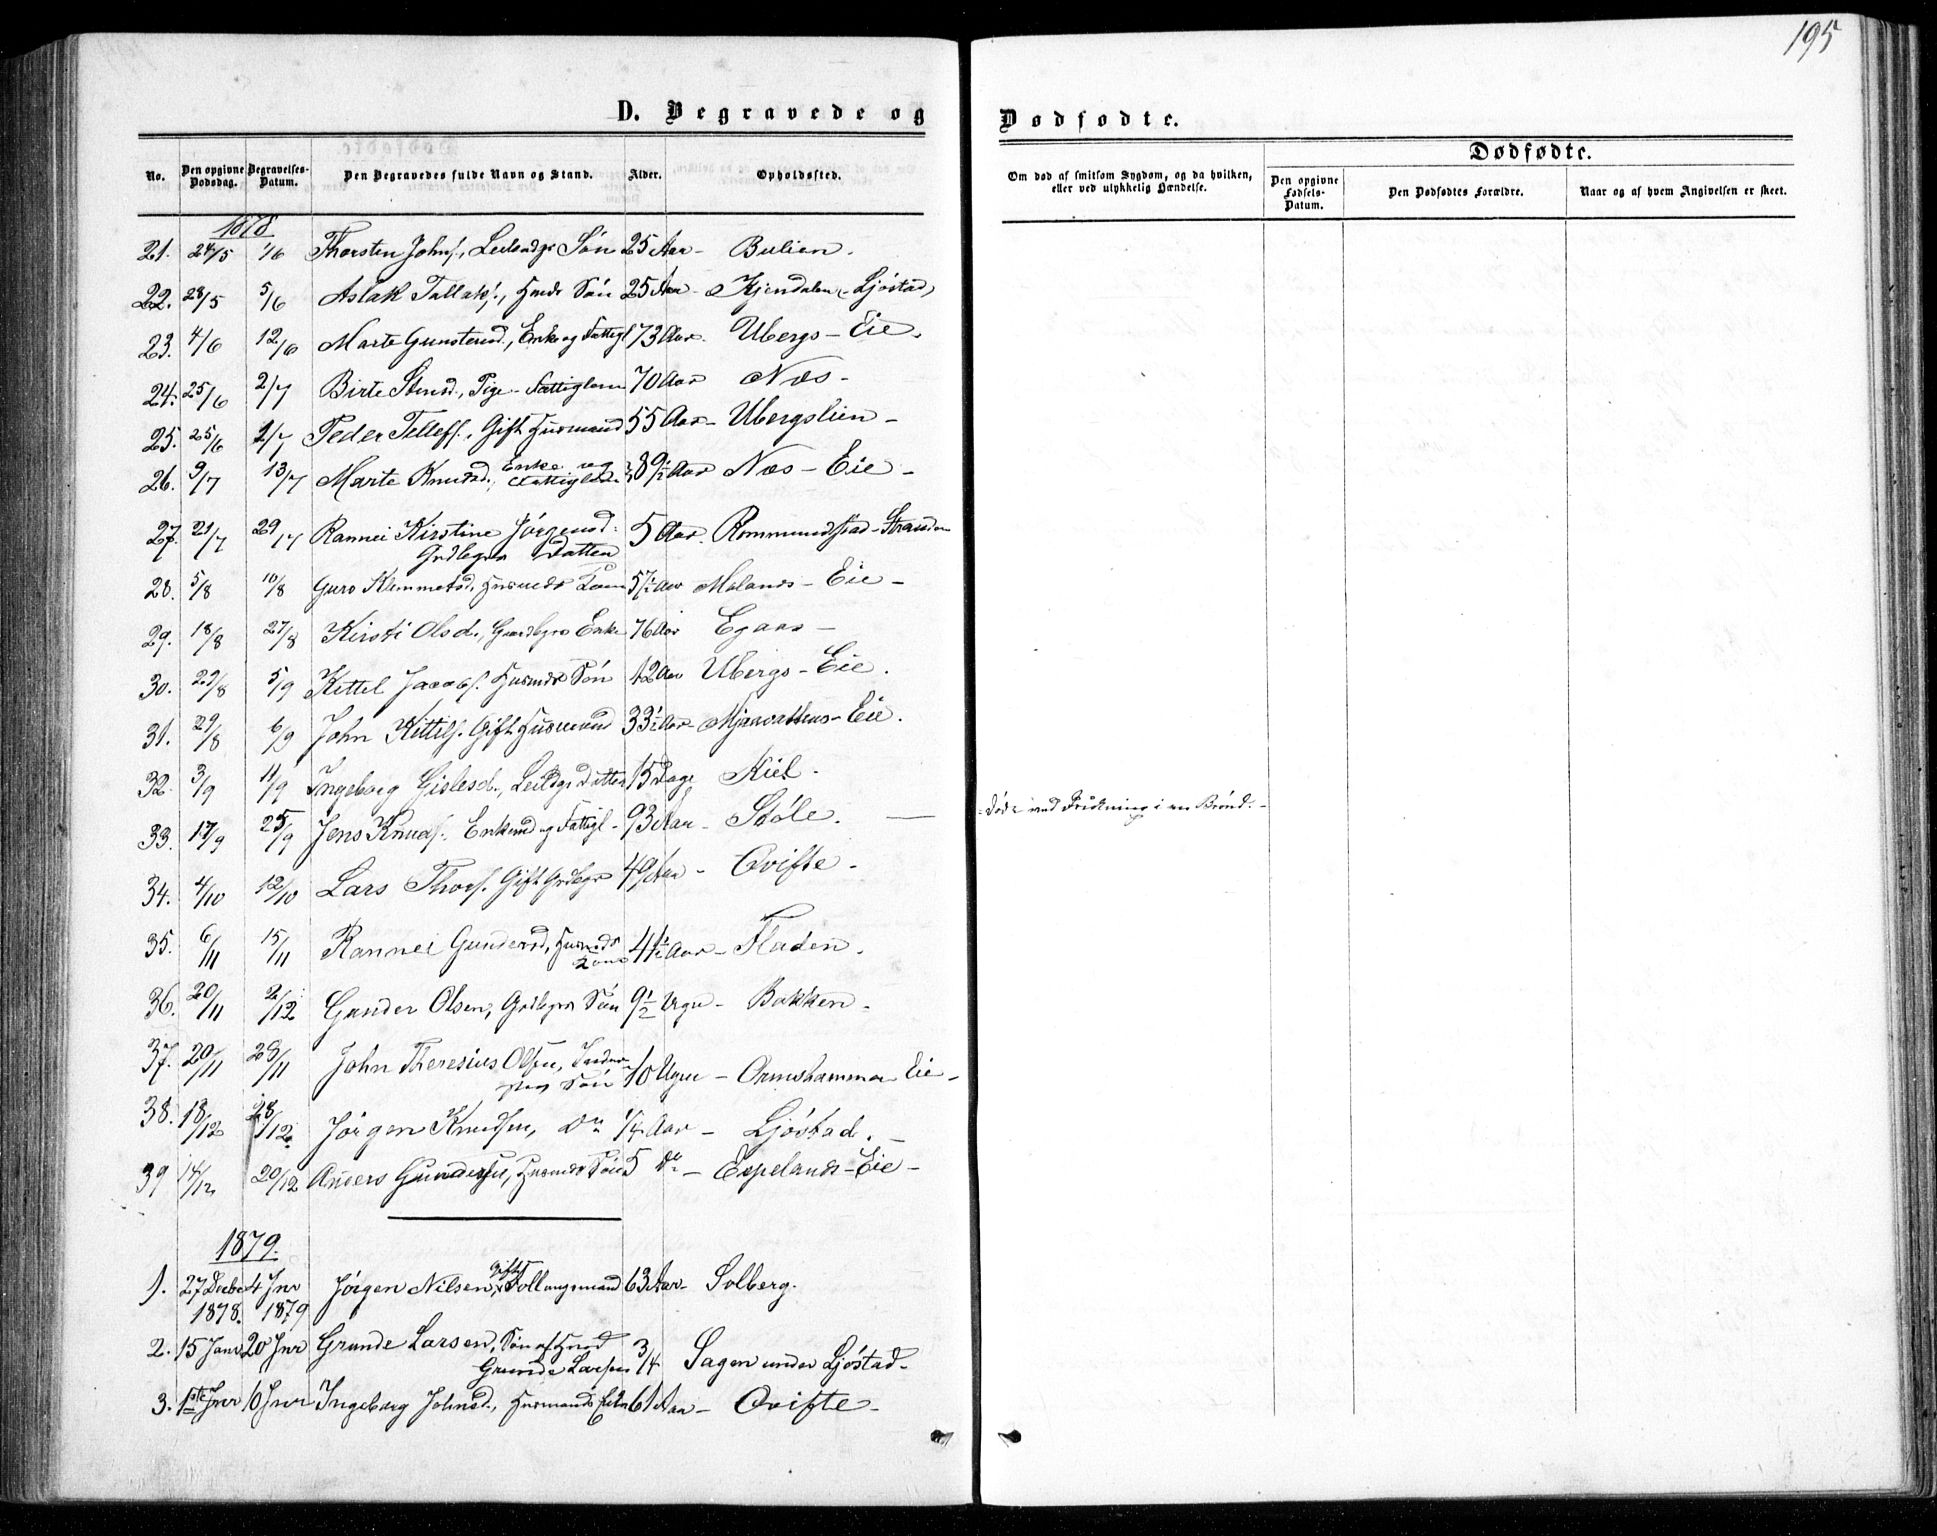 195
D. Begravede og Dødfødte.
No. Den opgivne Dødsdag. Begravelses-Datum. Den Begravedes fulde Navn og Stand. Alder. Opholdssted.
Om død af smitsom Sygdom, og da hvilken, eller ved ulykkelig Hændelse.
Dødfødte.
Den opgivne Fødsels-Datum. Den Dødfødtes Forældre. Naar og af hvem Angivelsen er skeet.
1878
21. 24/5 1/6 Thorsten Johns., Søn 25 Aar - Bulien.
22. 28/5 5/6 Aslak Tallaks., Husmds Søn 25 Aar - Kjendalen - Ljøstad
23. 4/6 12/6 Marte Gunstensd., Enke og Fattigl 73 Aar. Ubergs - Eie.
24. 25/6 2/7 Birte Stensd., Pige - Fattiglem 70 Aar Næs -
25. 25/6 2/7 Peder Tellefs., Gift Husmand 55 Aar - Ubergslien -
26. 9/7 13/7 Marte Knudsd., Enke og Fattiglem 89½ Aar Næs - Eie -
27. 21/7 29/7 Rannei Kirstine Jörgensd. Grdbegrs Datter 5 Aar. Rommundstad - Stranden
28. 5/8 10/8 Guro Klemmetsd., Husmds Kone 57½ Aar Molands - Eie -
29. 18/8 27/8 Kirsti Olsd., Enke 76 Aar Egaas -
30. 29/8 5/9 Kittel Jacobs. Husmds Søn 12 Aar Ubergs - Eie.
31. 29/8 6/9 John Kittils. Gift Husmand 33½ Aar - Mjaavatns - Eie.
32. 3/9 11/9 Ingeborg Gislesd., Datter 15 Dage Kiel.
33. 17/9 25/9 Jens Knuds. Enkemd og Fattigl - 93 Aar - Støle. — Døde ved Drukning i en Brønd. -
34. 4/10 12/10 Lars Thors. Gift Grdbgr 49 Aar - Qvifte -
35. 6/11 15/11 Rannei Gundersd, Husmds Kone 41½ Aar - Fladen.
36. 20/11 2/12 Gunder Olsen, Søn 9½ Uger - Bakken -
37. 20/11 28/11 John Theresius Olsen, Søn 10 Uger - Ormshammer Eie -
38. 18/12 28/12 Jørgen Knudsen, do ¼ Aar - Ljøstad. -
39 14/12 20/12 Anders Gundersen, Husmds Søn 5 do - Espelands - Eie -
1879.
1. 27 Decbr 1878. 4 Jnr 1879 Jørgen Nilsen, gift Follaugsmand 63 Aar - Solberg.
2. 15 Janr 20 Jnr Grunde Larsen, Søn af Husmd Grunde Larsen 3/4 Sagen under Ljøstad -
3. 1ste Jnr 10 Jnr Ingeborg Johnsd., Husmands Enke 61 Aar - Qvifte -